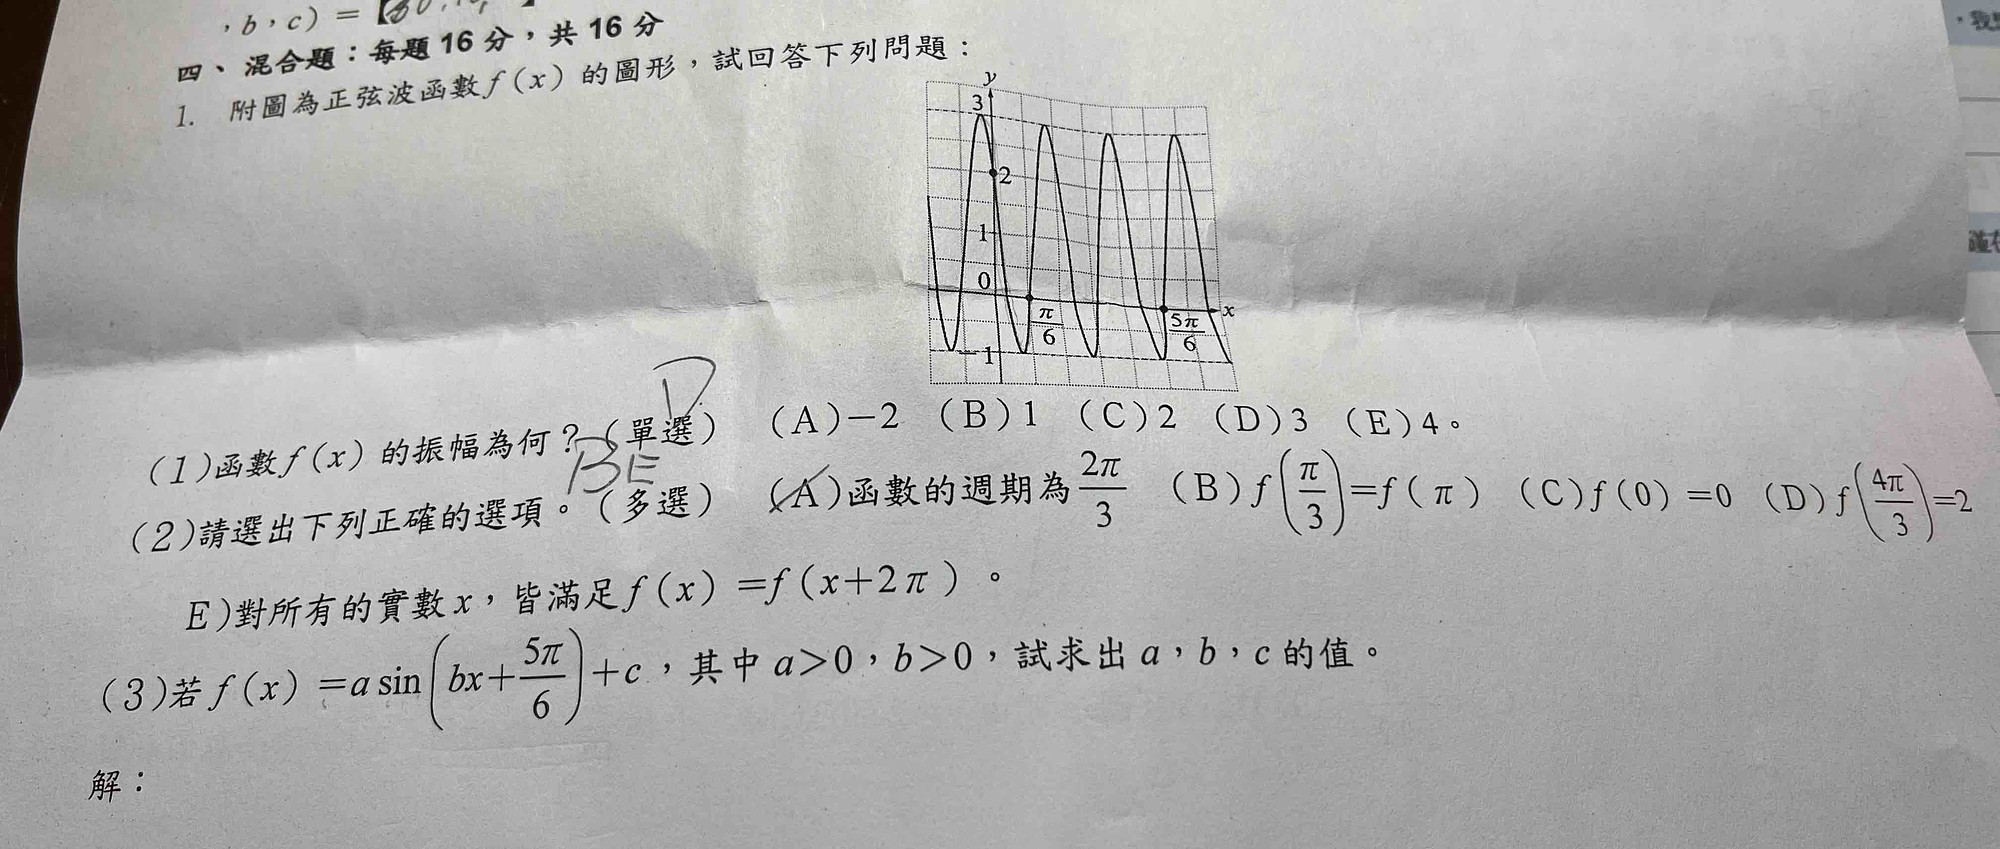 ，b，c）＝【30,10,】
四、混合題：每題 16 分，共 16 分
1. 附圖為正弦波函數 f（x）的圖形，試回答下列問題：
y
3
2
1
0
x
π/6
5π/6
−1
D
(1)函數 f（x）的振幅為何？（單選） （A）−2 （B）1 （C）2 （D）3 （E）4。
BE
(2)請選出下列正確的選項。（多選） （A）函數的週期為 2π/3 （B）f(π/3)=f（π） （C）f（0）=0 （D）f(4π/3)=2
E)對所有的實數 x，皆滿足 f（x）=f（x+2π）。
(3)若 f（x）=a sin(bx+5π/6)+c，其中 a>0，b>0，試求出 a，b，c 的值。
解：